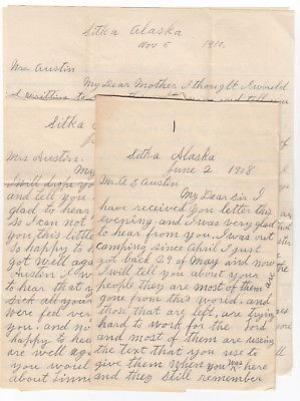 Sitka Alaska
Nov 5 1910.
Mrs Austin
My Dear Mother I thought I would
Sitka
Mrs Austin.
My
I will hope you
and tell you
glad to hear
So I can not
you this little
Is happy to h
got well aga
Austin I w
to hear that
Sick all your
were feel ver
you, and no
happy to hea
are well aga
you woul
about Linn
1
Sitka Alaska
June 2 1908
Mr A E Austin
My Dear Sir I
have received you letter this
evening and I was very glad
to hear from you. I was out
camping since April I just
got back 29 of May and now
I will tell you about your
people they are most of them are
gone from this world, and
those that are left, are trying
hard to work for the Lord
and most of them are useing
the text that you use to
give them When you was here
and they Still remember